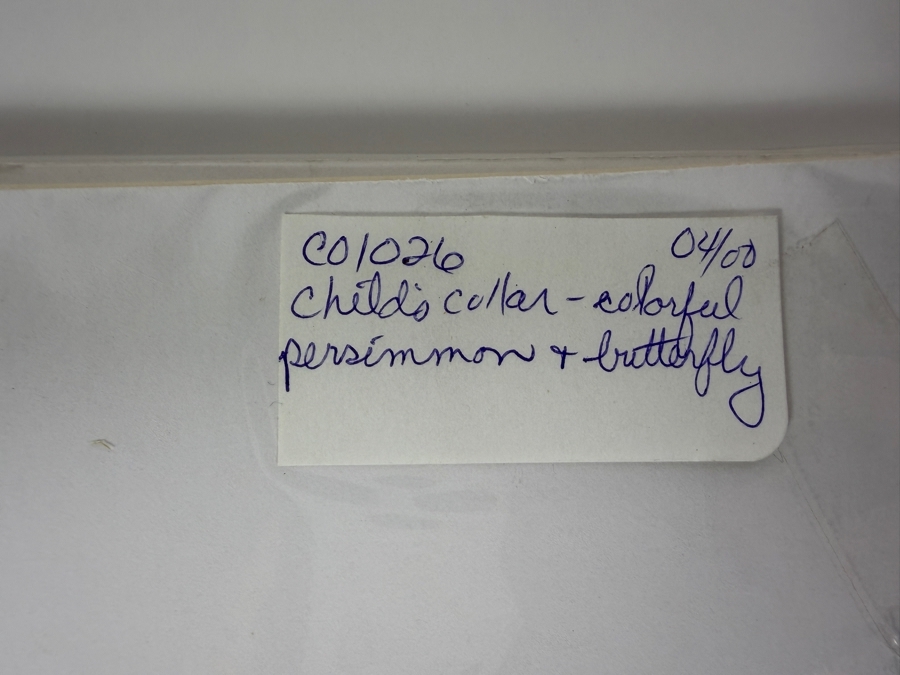 CO1026 04/00
Child's collar - colorful
persimmon + butterfly